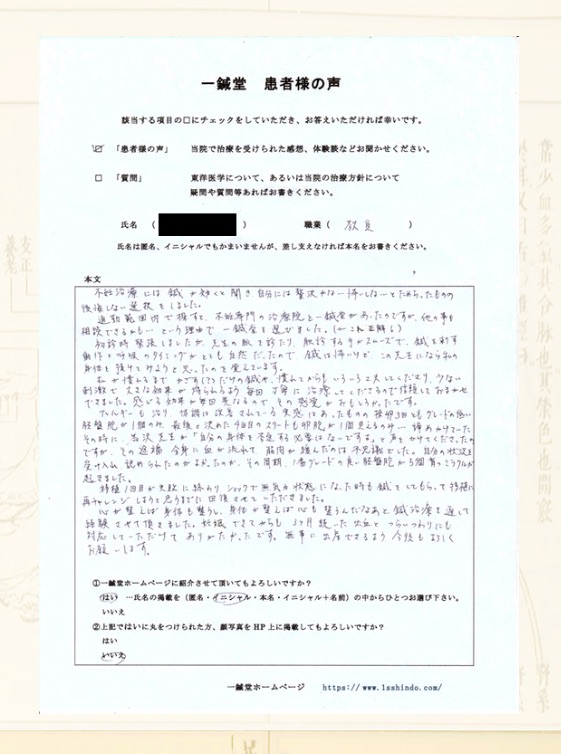 一鍼堂 患者様の声
該当する項目の□にチェックをしていただき、お答えいただければ幸いです。
☑ 「患者様の声」 当院で治療を受けられた感想、体験談などお聞かせください。
□ 「質問」 東洋医学について、あるいは当院の治療方針について
疑問や質問等あればお書きください。
氏名 （ ） 職業（ 教員 ）
氏名は匿名、イニシャルでもかまいませんが、差し支えなければ本名をお書きください。
本文
不妊治療には鍼が効くと聞き、自分には贅沢かな…怖いしな…とためらったものの
後悔しない選択をしました。
通勤範囲内で探すと、不妊専門の治療院と一鍼堂があったのですが、他の事も
相談できるかも…という理由で一鍼堂を選びました。(← これ正解!)
初診時緊張しましたが、先生の脈を診たり、触診する手がスムーズで、鍼を刺す
動作と呼吸のタイミングがとても自然だったので、鍼は怖いけど、この先生になら私の
身体を預けてみようと思ったのを覚えています。
私が慣れるまでかざすだけの鍼や、慣れてからもいろいろ工夫してくださり、少ない
刺激で大きな効果が得られるよう毎回丁寧に治療してくださるので信頼しておまかせ
できました。感じる効果が毎回異なるので、その感覚がおもしろかったです。
アレルギーも治り、体調は改善されている実感はあったものの採卵3回ともグレードの低い
胚盤胞が1個のみ、最後と決めた4回目のスタートも卵胞が1個見えるのみ…諦めかけていた
その時に、若沢先生が「自分の身体を否定する必要はないですよ。」と声をかけてくださったの
ですが、その途端、全身に血が流れて、筋肉が緩んだのは不思議でした。自分の状況を
受け入れ、認められたのがよかったのか、その周期、1番グレードの良い胚盤胞が5個育つミラクルが
起きました。
移植1回目が失敗に終わり、ショックで無気力状態になった時も鍼をしてもらって移植に
再チャレンジしようと思うまでに回復させていただきました。
心が整えば身体も整うし、身体が整えば心も整うんだなあと鍼治療を通して
経験させて頂きました。妊娠できてからも3ヶ月続いた出血とつらいつわりにも
対応していただけてありがたかったです。無事に出産できるよう今後もよろしく
お願いします。
①一鍼堂ホームページに紹介させて頂いてもよろしいですか？
はい …氏名の掲載を（匿名・イニシャル・本名・イニシャル＋名前）の中からひとつお選び下さい。
いいえ
②上記ではいに丸をつけられた方、顔写真を HP 上に掲載してもよろしいですか？
はい
いいえ
一鍼堂ホームページ https://www.1sshindo.com/